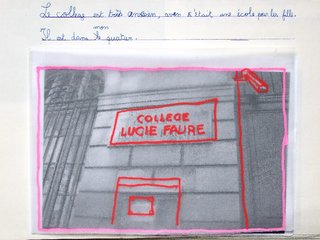 Le collège est très ancien, avant c'était une école pour les filles.
mon
Il est dans le quartier.
COLLEGE
LUCIE FAURE